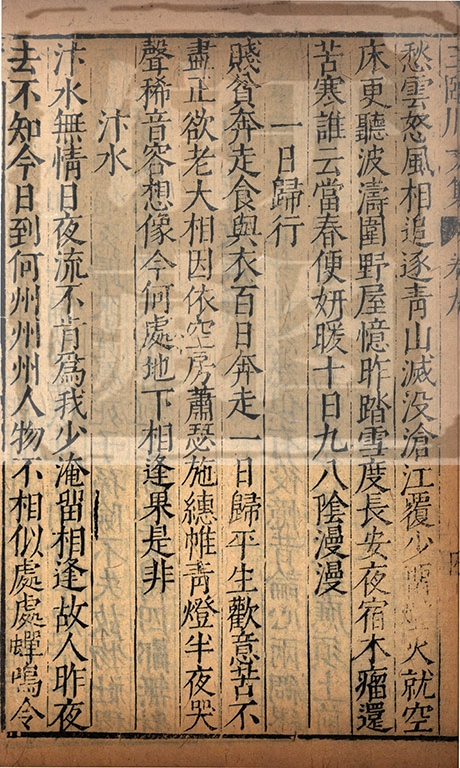 王臨川文集 卷九
愁雲怒風相追逐青山滅没滄江覆少火就空
床更聽波濤圍野屋憶昨踏雪度長安夜宿木瘤還
苦寒誰云當春便妍暖十日九八陰漫漫
一日歸行
賤貧奔走食與衣百日奔走一日歸平生歡意苦不
盡正欲老大相因依空房蕭瑟施繐帷青燈半夜哭
聲稀音容想像今何處地下相逢果是非
汴水
汴水無情日夜流不肯爲我少淹留相逢故人昨夜
去不知今日到何州州州人物不相似處處蟬鳴令